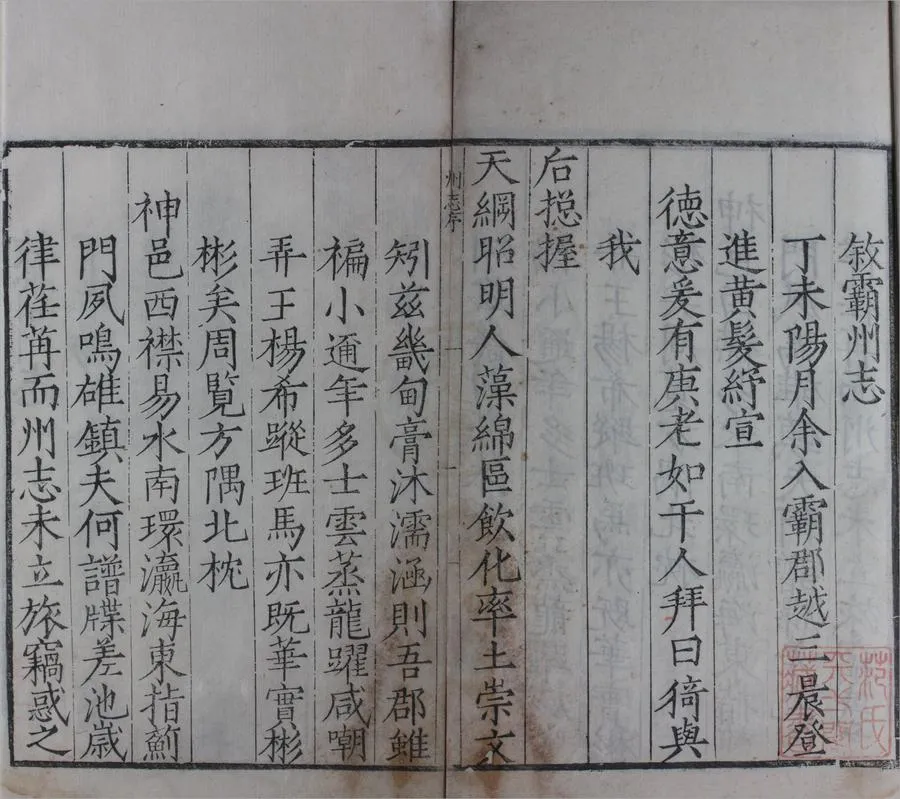 敘霸州志
丁未陽月余入霸郡越三晨登
進黃髮紓宣
德意爰有庚老如干人拜曰猗與
我
后摠握
天綱昭明人藻綿區飲化率土崇文
州志序
矧茲畿甸膏沐濡涵則吾郡雖
褊小邇年多士雲蒸龍躍咸嘲
弄王楊希蹤班馬亦既華實彬
彬矣周覽方隅北枕
神邑西襟易水南環瀛海東指薊
門夙鳴雄鎮夫何譜牒差池歲
律荏苒而州志未立旅竊惑之